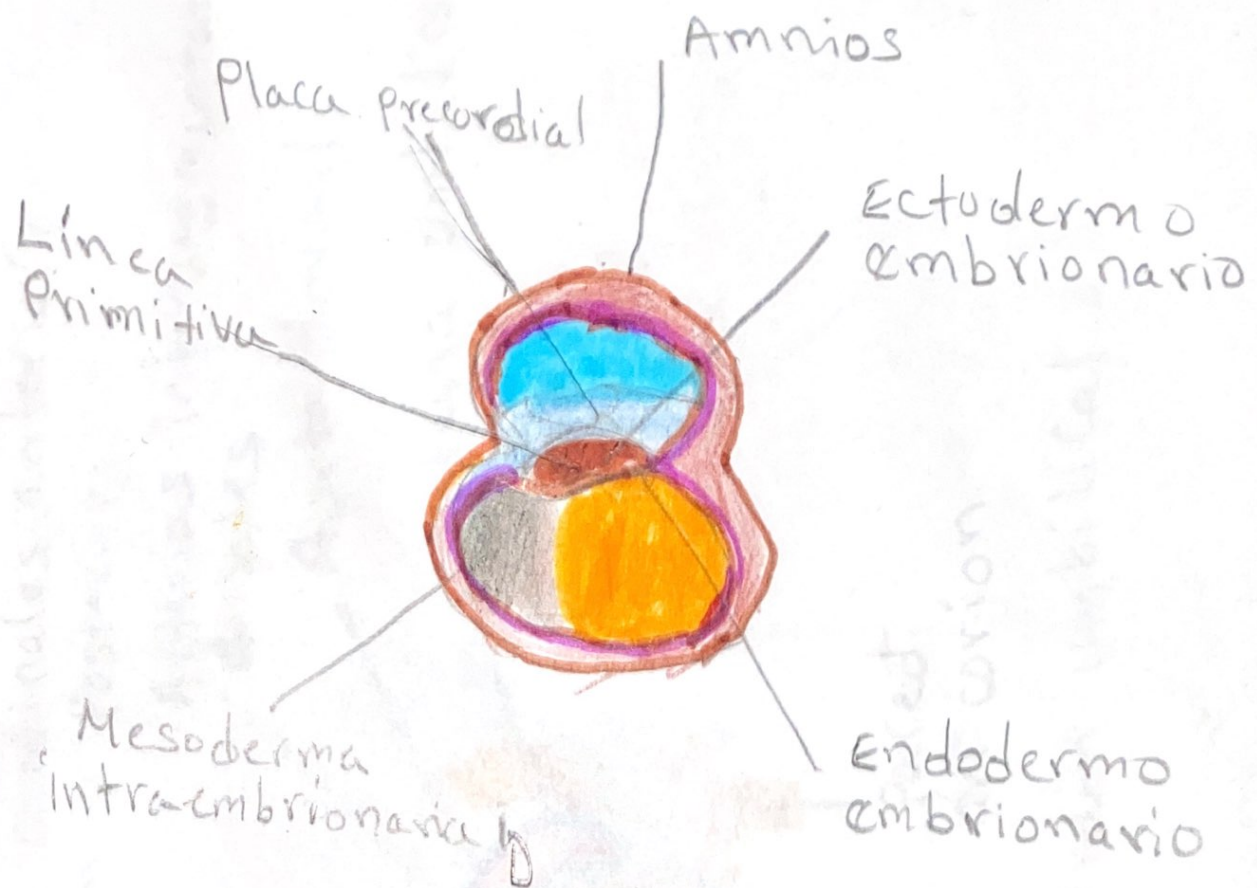 Amnios
Placa precordial
Ectodermo
embrionario
Línea
Primitiva
Mesoderma
intraembrionaria
Endodermo
embrionario